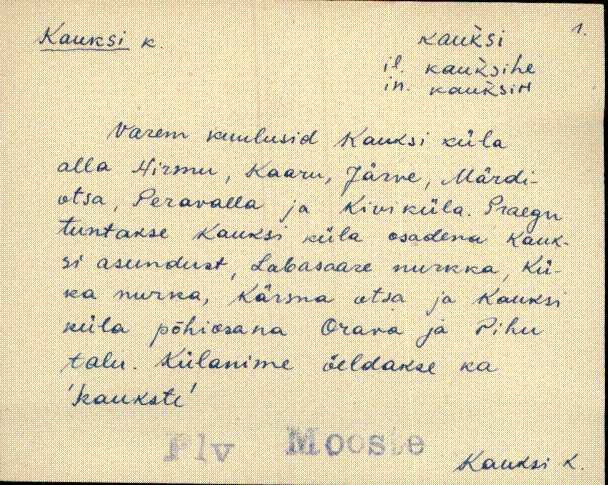 Kauksi k.
1.
kau͔k̆si
il. kauk̆sihe
in. kauk̆siH
Varem kuulusid Kauksi küla
alla Hirmu, Kaaru, Järve, Märdi-
otsa, Peravalla ja Kiviküla. Praegu
tuntakse Kauksi küla osadena Kauk-
si asundust, Labasaare nurkka, Kü-
ka nurka, Kärsna otsa ja Kauksi
küla põhiosana Orava ja Pihu
talu. Külanime öeldakse ka
'kaukste'
Plv Mooste
Kauksi k.